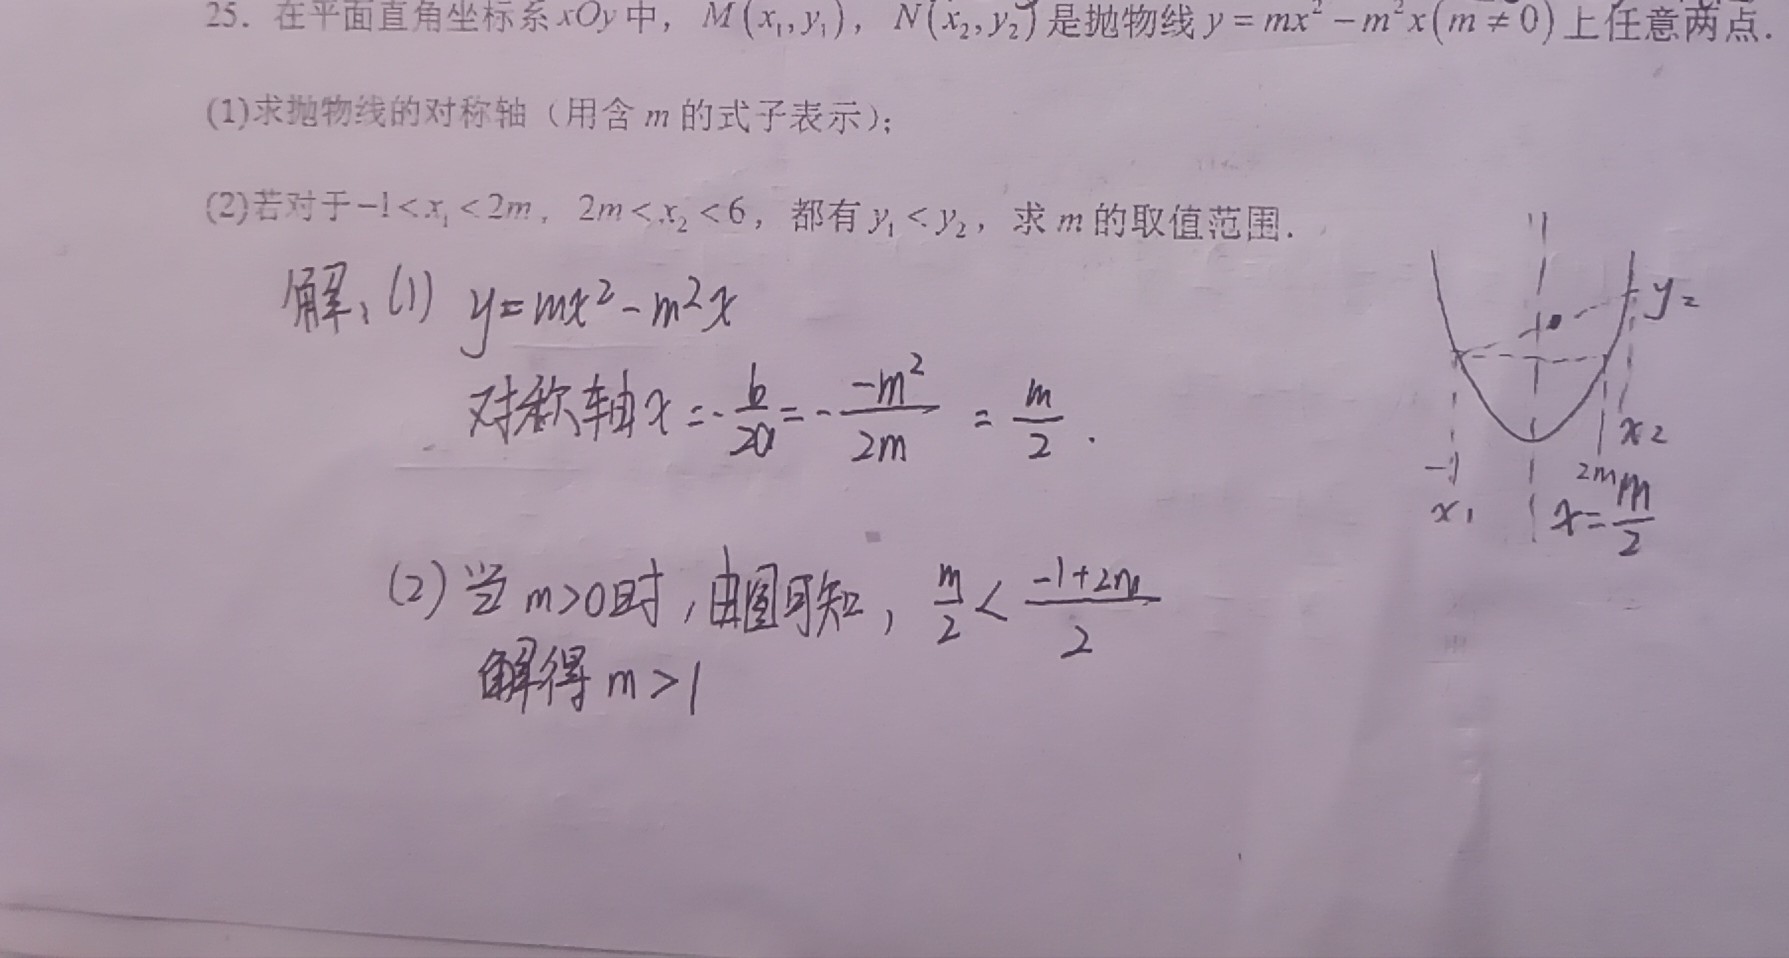 25. 在平面直角坐标系 xOy 中, M(x₁,y₁), N(x₂,y₂)是抛物线 y=mx²-m²x(m≠0)上任意两点.
(1)求抛物线的对称轴（用含 m 的式子表示）;
(2)若对于-1<x₁<2m, 2m<x₂<6, 都有 y₁<y₂, 求 m 的取值范围.
解: (1) y=mx²-m²x
对称轴x=-b/2a=-(-m²)/2m=m/2.
(2)当m>0时,由图可知, m/2<(-1+2m)/2
解得m>1
y₂
-1
x₁
2m
x₂
x=m/2